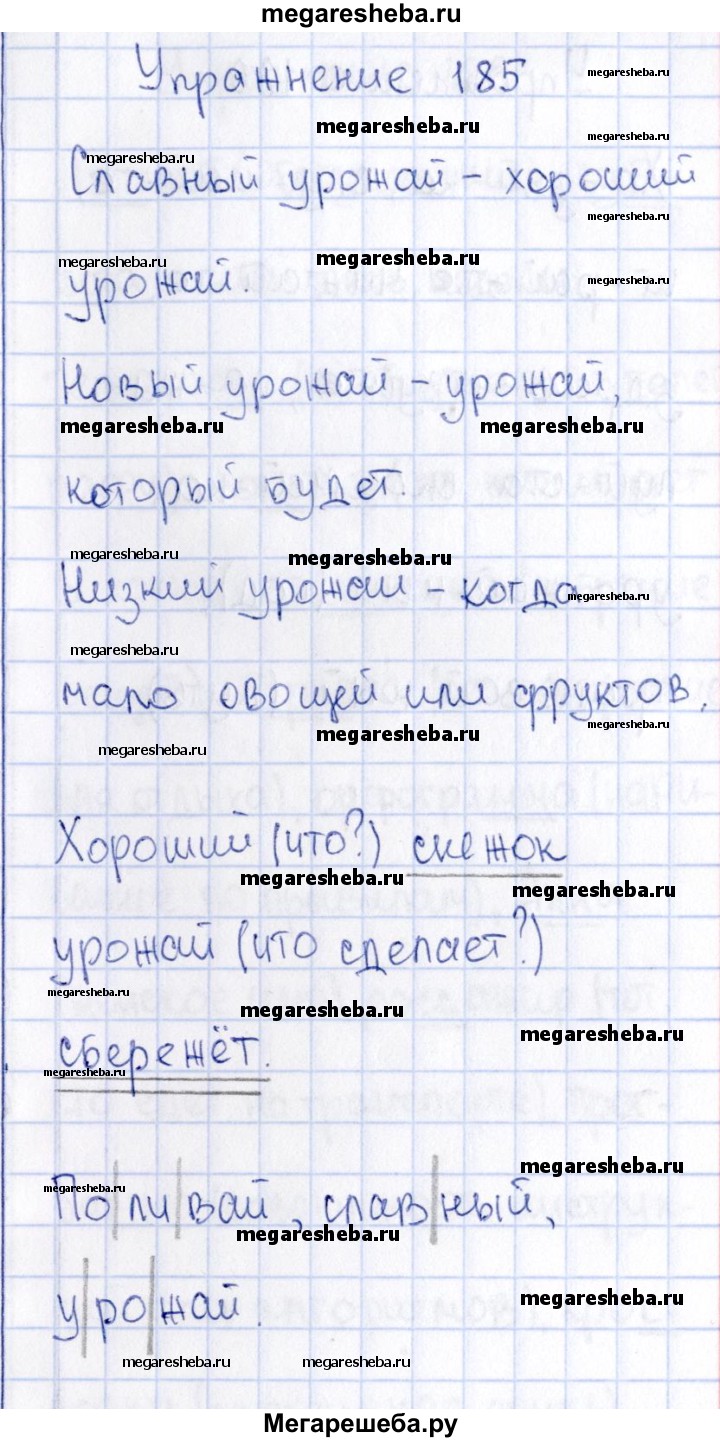 megaresheba.ru
Упражнение 185
megaresheba.ru
megaresheba.ru
megaresheba.ru
megaresheba.ru
Славный урожай - хороший
megaresheba.ru
megaresheba.ru
megaresheba.ru
megaresheba.ru
урожай.
Новый урожай - урожай,
megaresheba.ru
megaresheba.ru
который будет.
megaresheba.ru
megaresheba.ru
Низкий урожай - когда
megaresheba.ru
megaresheba.ru
мало овощей или фруктов.
megaresheba.ru
megaresheba.ru
megaresheba.ru
Хороший (что?) снежок
megaresheba.ru
megaresheba.ru
урожай (что сделает?)
megaresheba.ru
megaresheba.ru
megaresheba.ru
сбережёт.
megaresheba.ru
megaresheba.ru
megaresheba.ru
По|ли|вай, слав|ный,
megaresheba.ru
у|ро|жай.
megaresheba.ru
megaresheba.ru
megaresheba.ru
Мегарешеба.ру